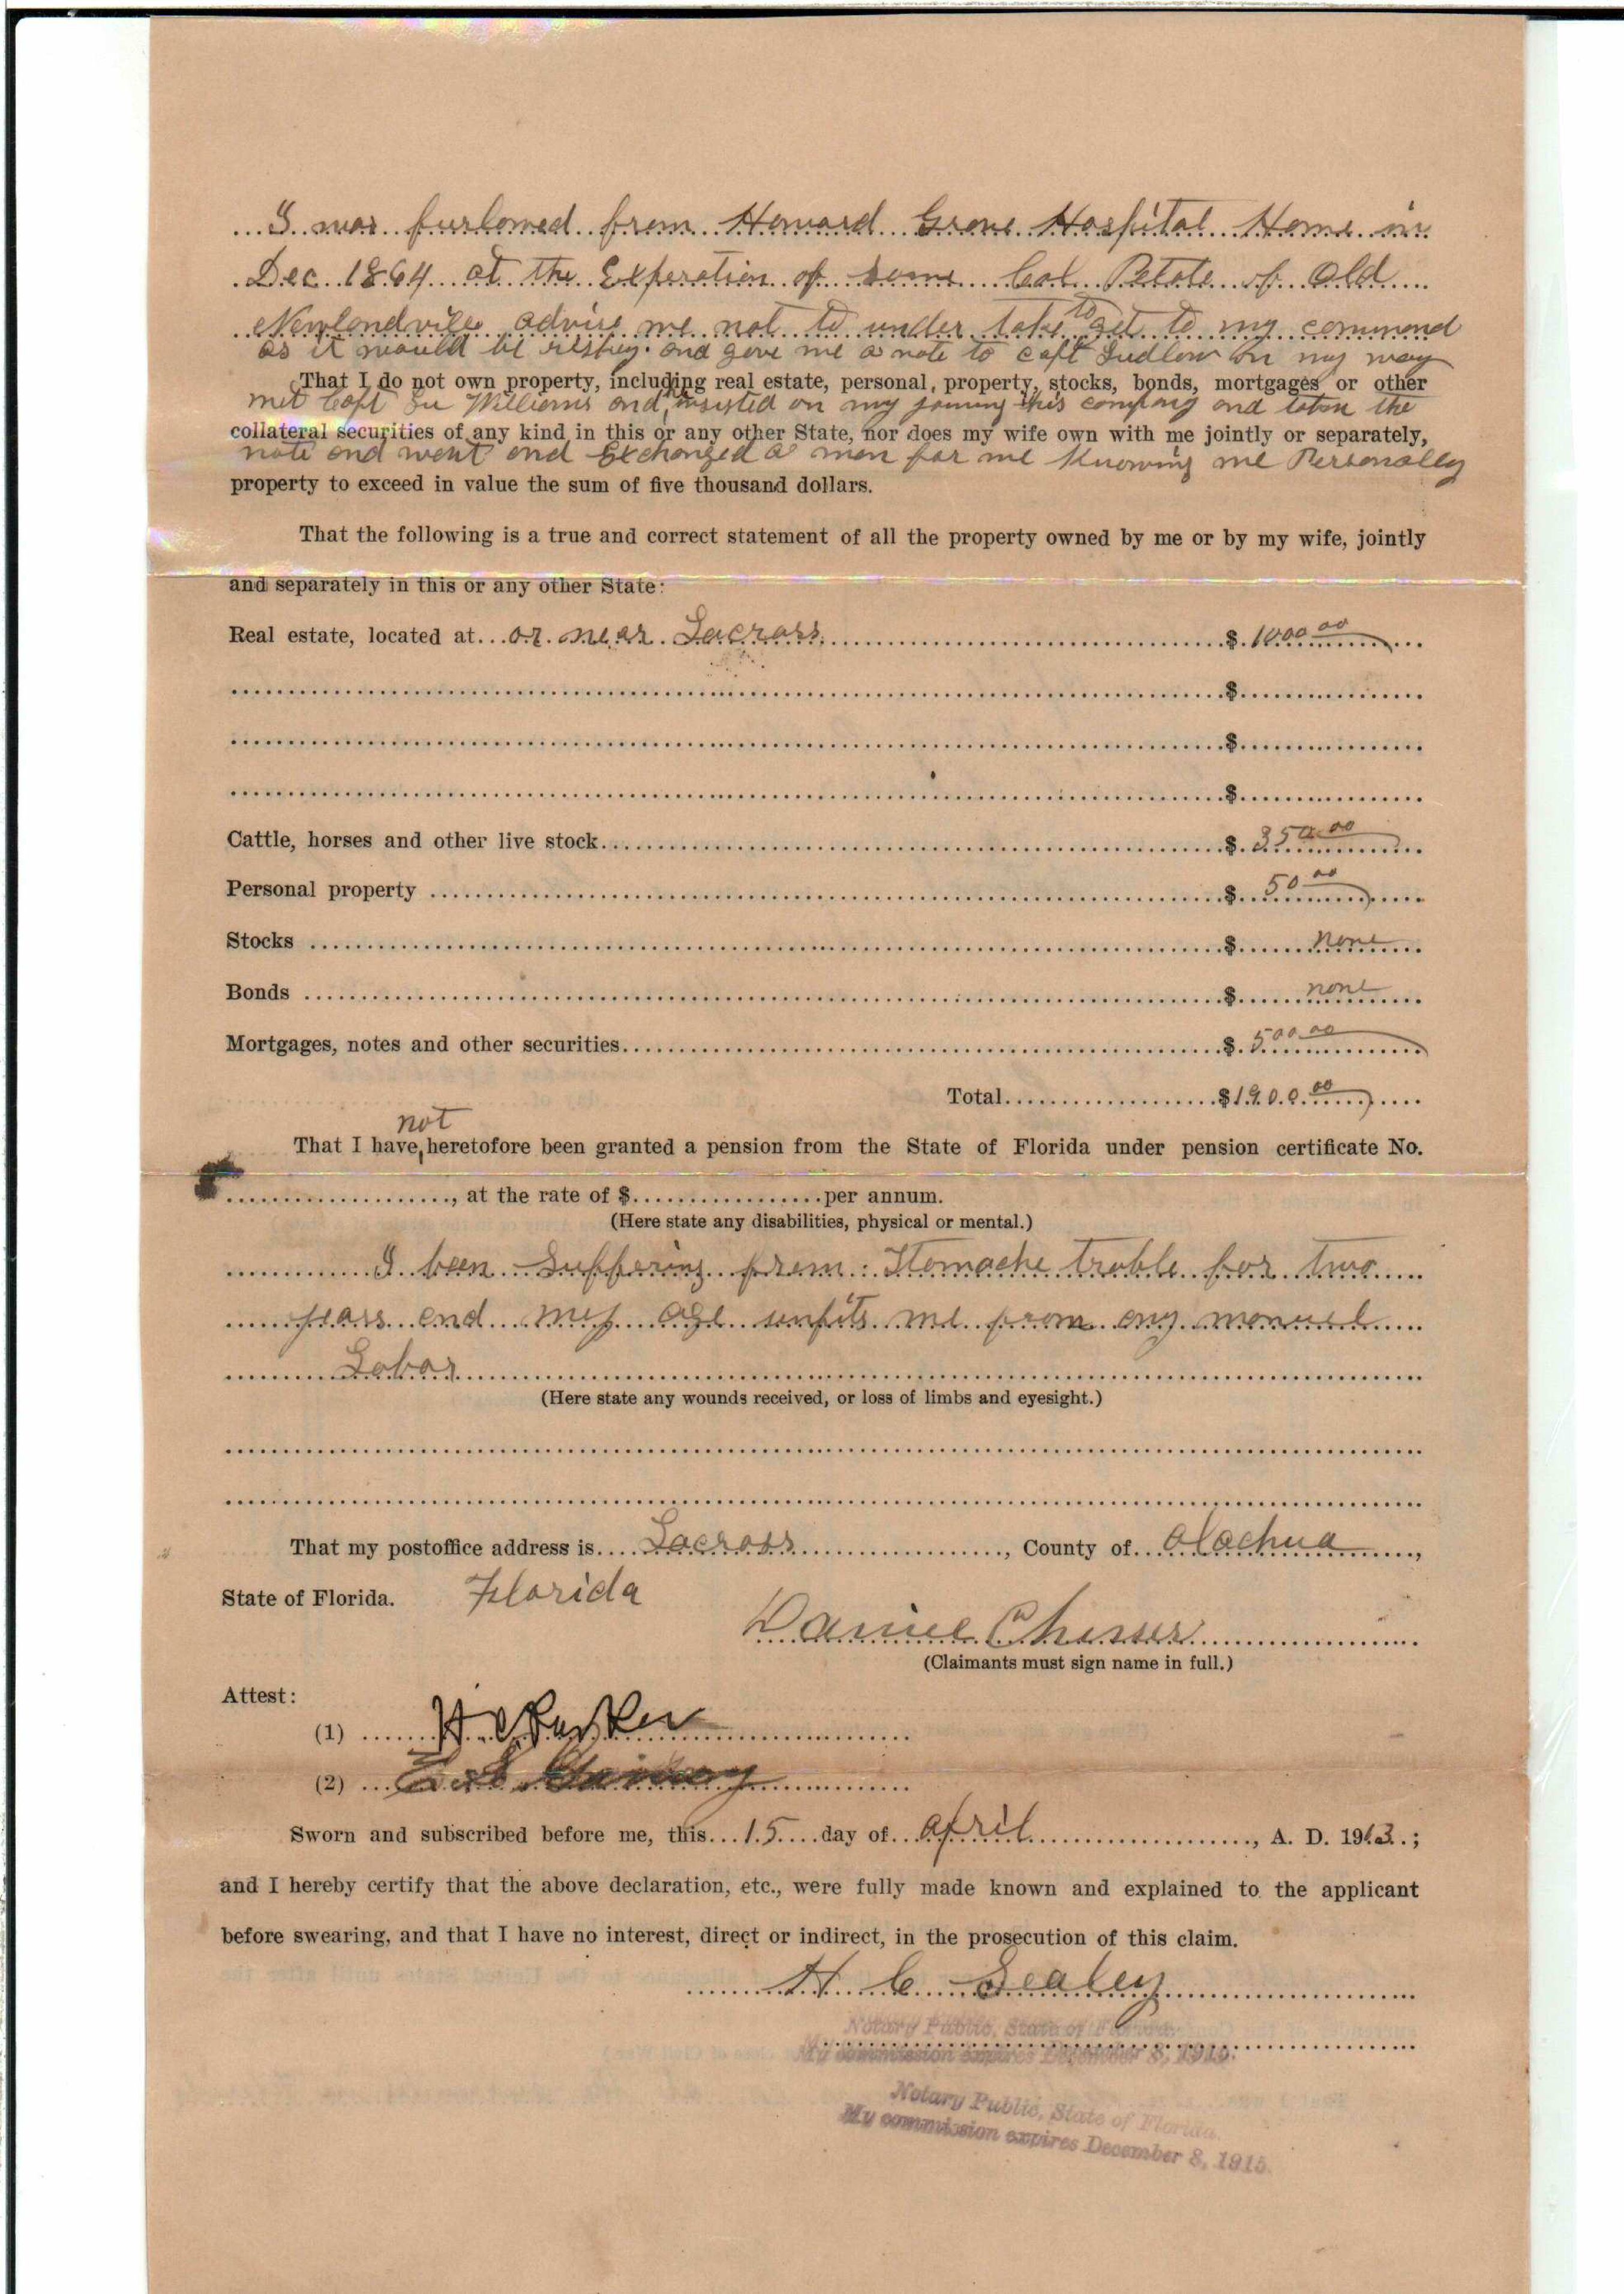 I was furlowed from Howard Grove Hospital Home in
Dec 1864 at the Experation of same Col. of Old
Newlondvile advise me not to under take to get to my command
as it would be riskey. and gave me a note to capt Ludlow on my way
That I do not own property, including real estate, personal, property, stocks, bonds, mortgages or other
met Capt Williams and he insisted on my joining his company and taken the
collateral securities of any kind in this or any other State, nor does my wife own with me jointly or separately,
note and went and Exchanged a man for me Knowing me Personally
property to exceed in value the sum of five thousand dollars.
That the following is a true and correct statement of all the property owned by me or by my wife, jointly
and separately in this or any other State:
Real estate, located at or near Lacross $ 1000 00
$
$
$
Cattle, horses and other live stock $ 350 00
Personal property $ 50 00
Stocks $ none
Bonds $ none
Mortgages, notes and other securities $ 500 00
Total $ 1900 00
not
That I have, heretofore been granted a pension from the State of Florida under pension certificate No.
, at the rate of $ per annum.
(Here state any disabilities, physical or mental.)
I been Suffering from Stomache truble for two
years and my age unfits me from any manuel
Labor
(Here state any wounds received, or loss of limbs and eyesight.)
That my postoffice address is Lacross, County of Alachua,
State of Florida. Florida
Daniel Chesser
(Claimants must sign name in full.)
Attest:
(1)
(2)
Sworn and subscribed before me, this 15 day of April, A. D. 1913.;
and I hereby certify that the above declaration, etc., were fully made known and explained to the applicant
before swearing, and that I have no interest, direct or indirect, in the prosecution of this claim.
H C Sealey
Notary Public, State of Florida.
My commission expires December 8, 1915.
Notary Public, State of Florida.
My commission expires December 8, 1915.